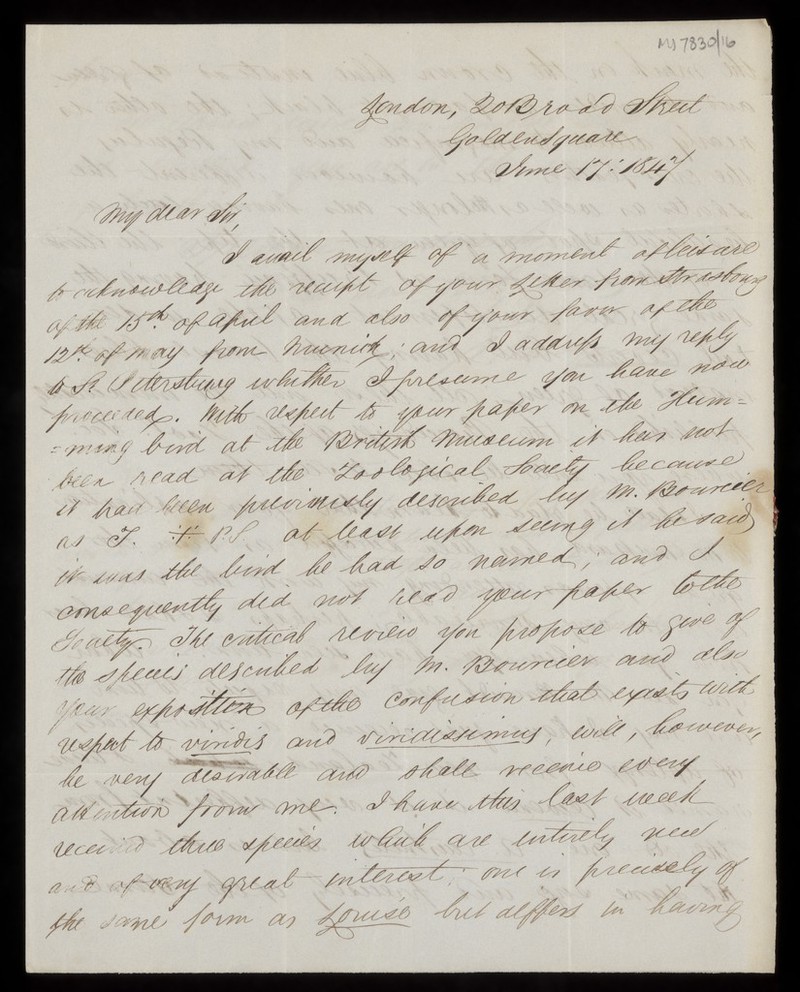 MS 7830/16
London, 20 Broad Street
Golden Square
June 17: 1847
My dear Sir,
I avail myself of a moment of leisure
to acknowledge the receipt of your letter from Strasbourg
of the 15th of April and also of your favor of the
12th of May from Munich; and I address my reply
to St Petersburg whither I presume you have now
proceeded. With respect to your paper on the Hum=
=ming bird at the British Museum it has not
been read at the Zoological Society because
it had been previously described by M. Bourcier
as T. at least upon seeing it he said
it was the bird he had so named; and I
consequently did not read your paper to the
Society. The critical review you propose to give of
the species described by M. Bourcier and also
your exposition of the confusion that exists with
respect to viridis and viridissimus, will, however,
be very desirable and shall receive every
attention from me. I have this last week
received three species which are entirely new
and of very great interest: one is precisely of
the same form as Louise but differs in having